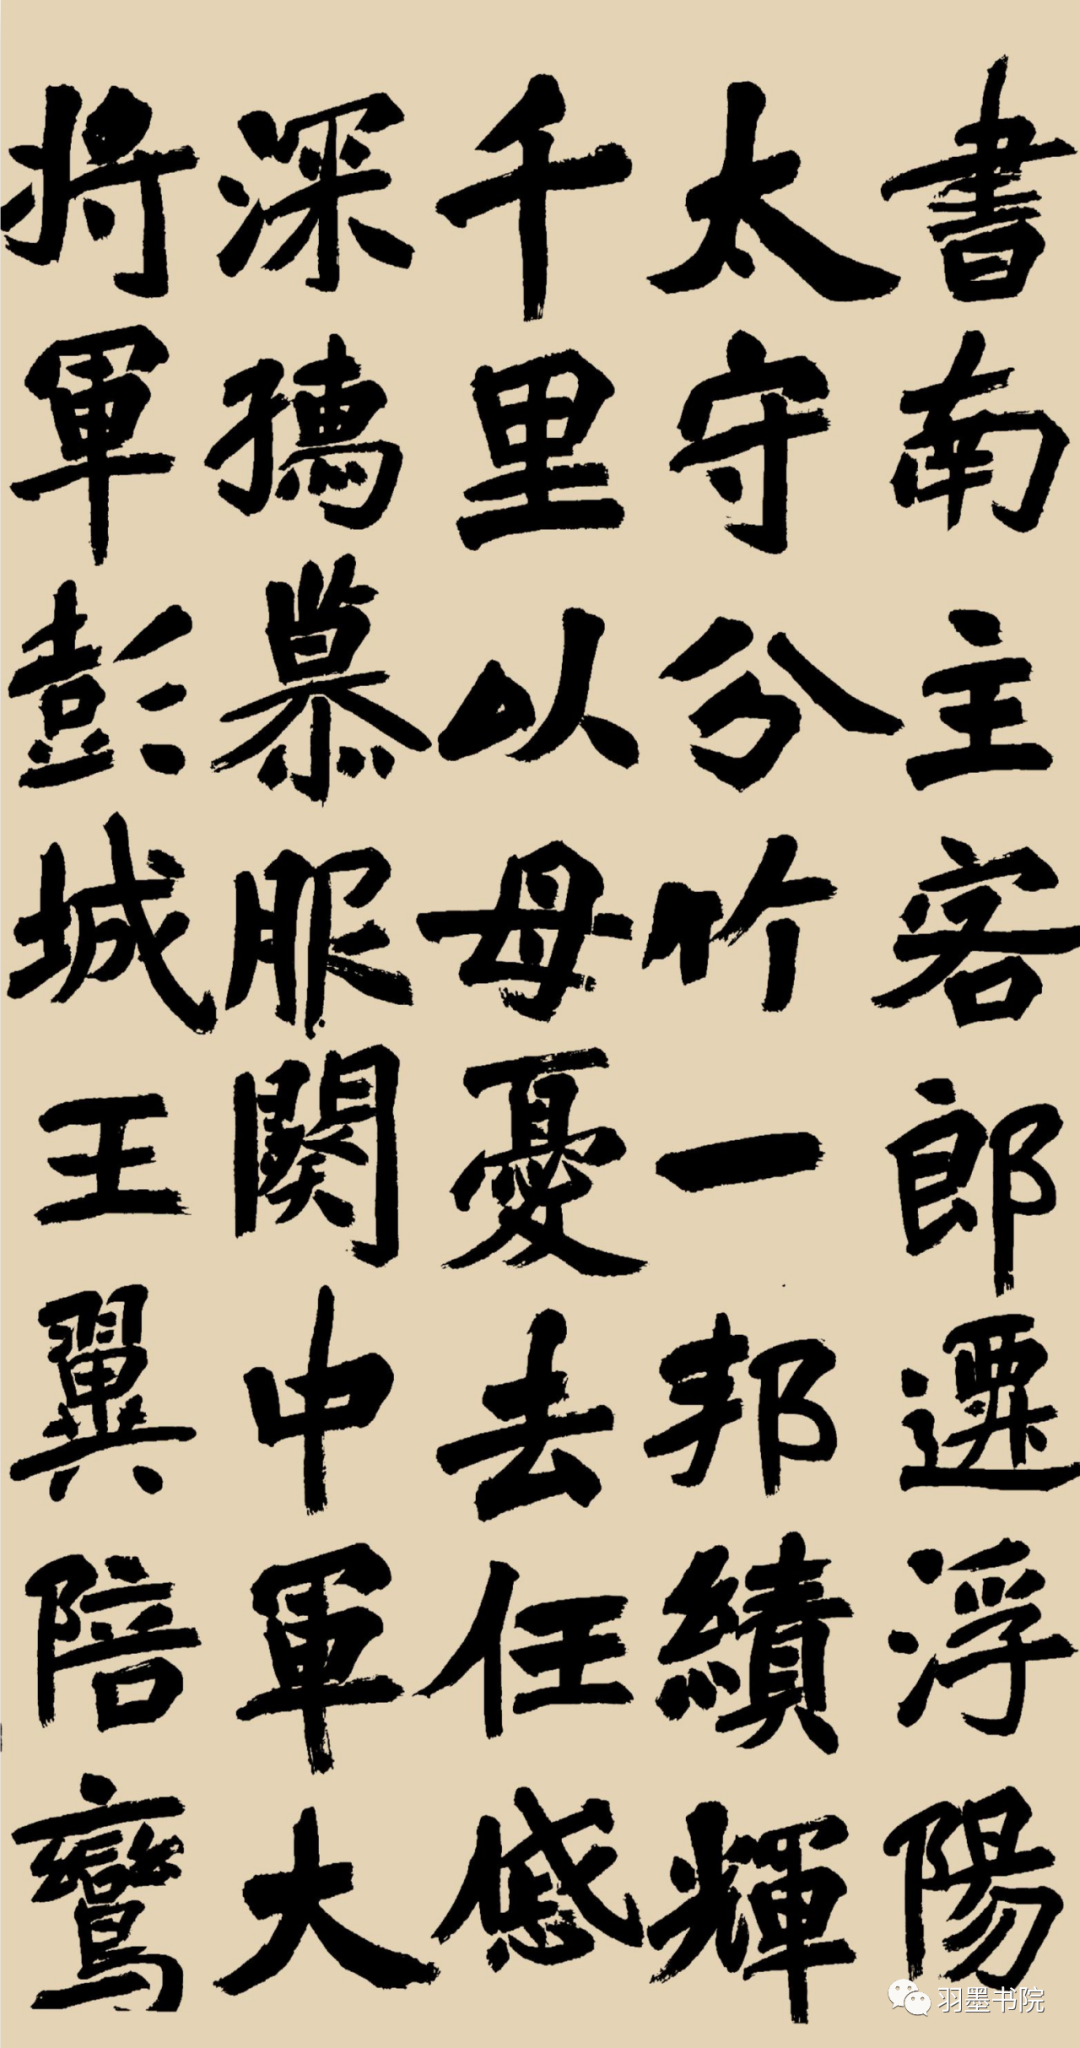 書南主客郎遷浮陽
太守分竹一邦績輝
千里以母憂去任感
深孺慕服闋中軍大
將軍彭城王翼陪鸞
羽墨书院